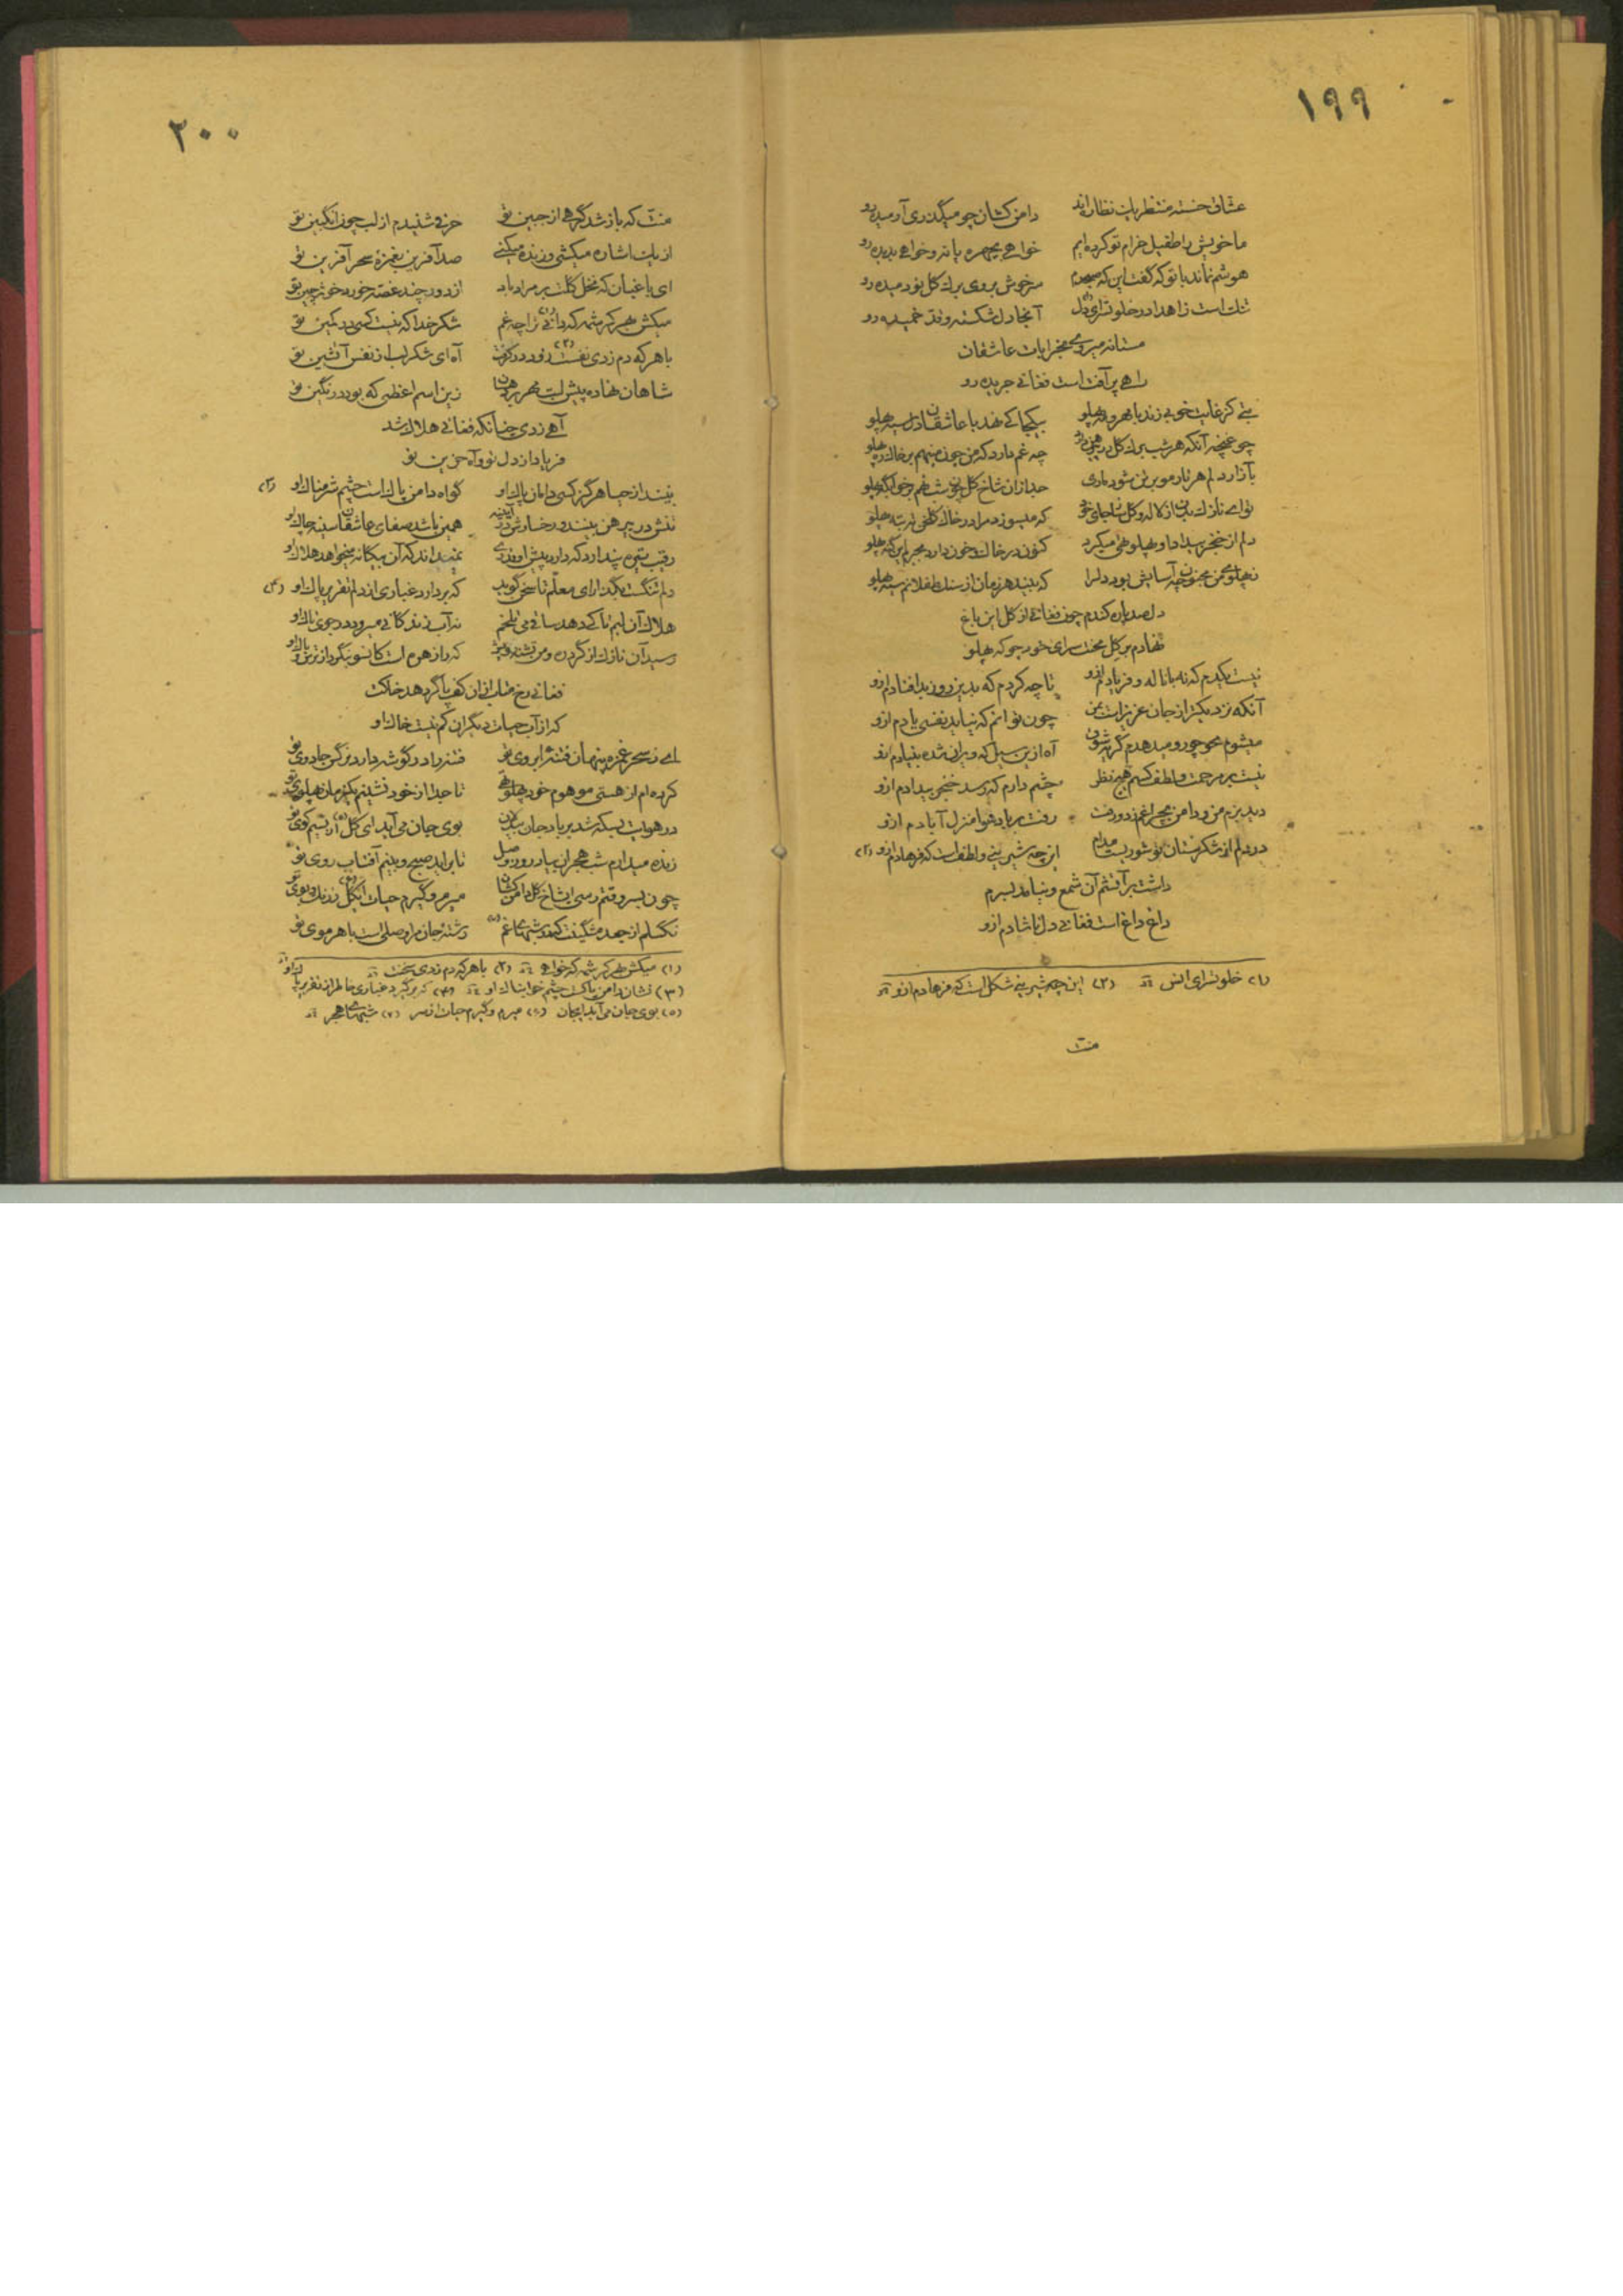 ۱۹۹
عشاق خسته منتظر یک نظاره‌اند دامن کشان چو میگذری آرمیده رو
ما خویش را طفیل خرام تو کرده‌ایم خواهی بچهره پا نه و خواهی بدیده رو
هوشم نماند با تو که گفت این که صبحدم سرخوش بروی برگ گل نودمیده رو
تنگ است زاهدا در خلوتسرای دل (۱) آنجا دل شکسته و قد خمیده رو
مستانه میروی بخرابات عاشقان
راهی پر آفت است فغانی جریده رو
بتی کز غایت خوبی زند با مهر و مه پهلو بیکجا کی نهد با عاشقان دل سیه پهلو
چو غنچه آنکه هر شب برگ گل در پیرهن دارد چه غم دارد که من چون مینهم بر خاک ره پهلو
بآزار دلم هر تار مو بر تن شود ماری جدا زان شاخ گل چون شب نهم بر خوابگه پهلو
تو ای نازک بدن از لاله و گل ساز جای خود که میسوزد مرا در خاک گلخن ته بته پهلو
دلم از خنجر بیداد او پهلو تهی میکرد کنون در خاک و خون دارد بجرم این گنه پهلو
ز پهلوی من مجنون چه آسایش بود دلرا که بیند هر زمان از سنگ طفلانم سیه پهلو
دل صد پاره کندم چون فغانی از گل این باغ
نهادم بر گل محنت سرای خود چو که پهلو
نیست یکدم که نه با ناله و فریادم ازو تا چه کردم که بدین روز بد افتادم ازو
آنکه نزدیکتر از جان عزیز است بمن چون توانم که نیاید نفسی یادم ازو
میشوم محو چو رو میدهدم گریهٔ شوق آه ازین سیل که ویران شده بنیادم ازو
نیست بر مرحمت و لطف کسم هیچ نظر چشم دارم که رسد خنجر بیدادم ازو
دید بزم من و دامن بچراغم زد و رفت رفت بر باد هوا منزل آبادم ازو
در دلم از شکرستان تو شوریست مدام این چه شیرینی و لطف است که فرهادم ازو (۲)
داشت بر آتشم آن شمع و نیامد بسرم
داغ داغ است فغانی دل ناشادم ازو
(۱) خلوتسرای انس (۲) این چه شیرینی شکل است که فرهادم ازو
منت
۲۰۰
منت که باز شد گرهی از جبین تو حرفی شنیدم از لب چون انگبین تو
از یک اشاره میکشی و زنده میکنی صد آفرین بغمزهٔ سحر آفرین تو
ای باغبان که نخل گلت بر مراد باد از دور چند غصه خورد خوشه‌چین تو
میکش بهر کرشمه که دانی (۱) ترا چه غم شکر خدا که نیست کسی در کمین تو
با هر که دم زدی نفست (۲) زود در گرفت آه ای شکر لب از نفس آتشین تو
شاهان نهاده پیش لبت مهر بر دهان زین اسم اعظمی که بود در نگین تو
آهی زدی چنانکه فغانی هلاک شد
فریاد از دل تو و آه حزین تو
نبیند از حیا هرگز کسی دامان پاک او گواه دامن پاک است چشم شرمناک او (۳)
تنش در پیرهن بینند و رخسارش در آیینه همین باشد صفای عاشقان سینه چاک او
رقیب تیره پندارد که دارد پیش او قدری نمیداند که آن بیگانه میخواهد هلاک او
دلم تنگست بگذار ای معلم تا سخن گوید که بردارد غباری از دلم تقریر پاک او (۴)
هلاک آن لبم تا کی دهد ساقی می تلخم نه آب زندگانی میرود در جوی تاک او
رسید آن نازک از گرد ره و من تشنه
فغانی رخ متاب از آن کف پا گر دهد خاکت
که از آب حیات دیگران کم نیست خاک او
ای ز سحر غمزه پنهان فتنهٔ ابروی تو فتنه‌ها در گوشه دارد نرگس جادوی تو
کرده‌ام از هستی موهوم خود پهلو تهی تا جدا از خود نشینم یکزمان پهلوی تو
در هوایت بسکه شد بر باد جان بیدلان بوی جان می‌آید ای گل (۵) از نسیم کوی تو
زنده میدارم شب هجران بیاد روز وصل تا برآید صبح و بینم آفتاب روی تو
چون بسر وقتم رسی ای شاخ گل دامن کشان میرم و گیرم حیات ای گل (۶) ز رنگ و بوی تو
نگسلم از جعد مشگینت کمند شبهای غم (۷) رشتهٔ جان مرا وصلی است با هر موی تو
(۱) میکش بهر کرشمه که خواهی (۲) با هر که دم زدی سخنت
(۳) نشان دامن پاک است چشم خوابناک او (۴) که برگیرد غباری خاطر از تقریر پاک او
(۵) بوی جان می‌آید ایجان (۶) میرم و گیرم حیات از سر (۷) شبهای هجر